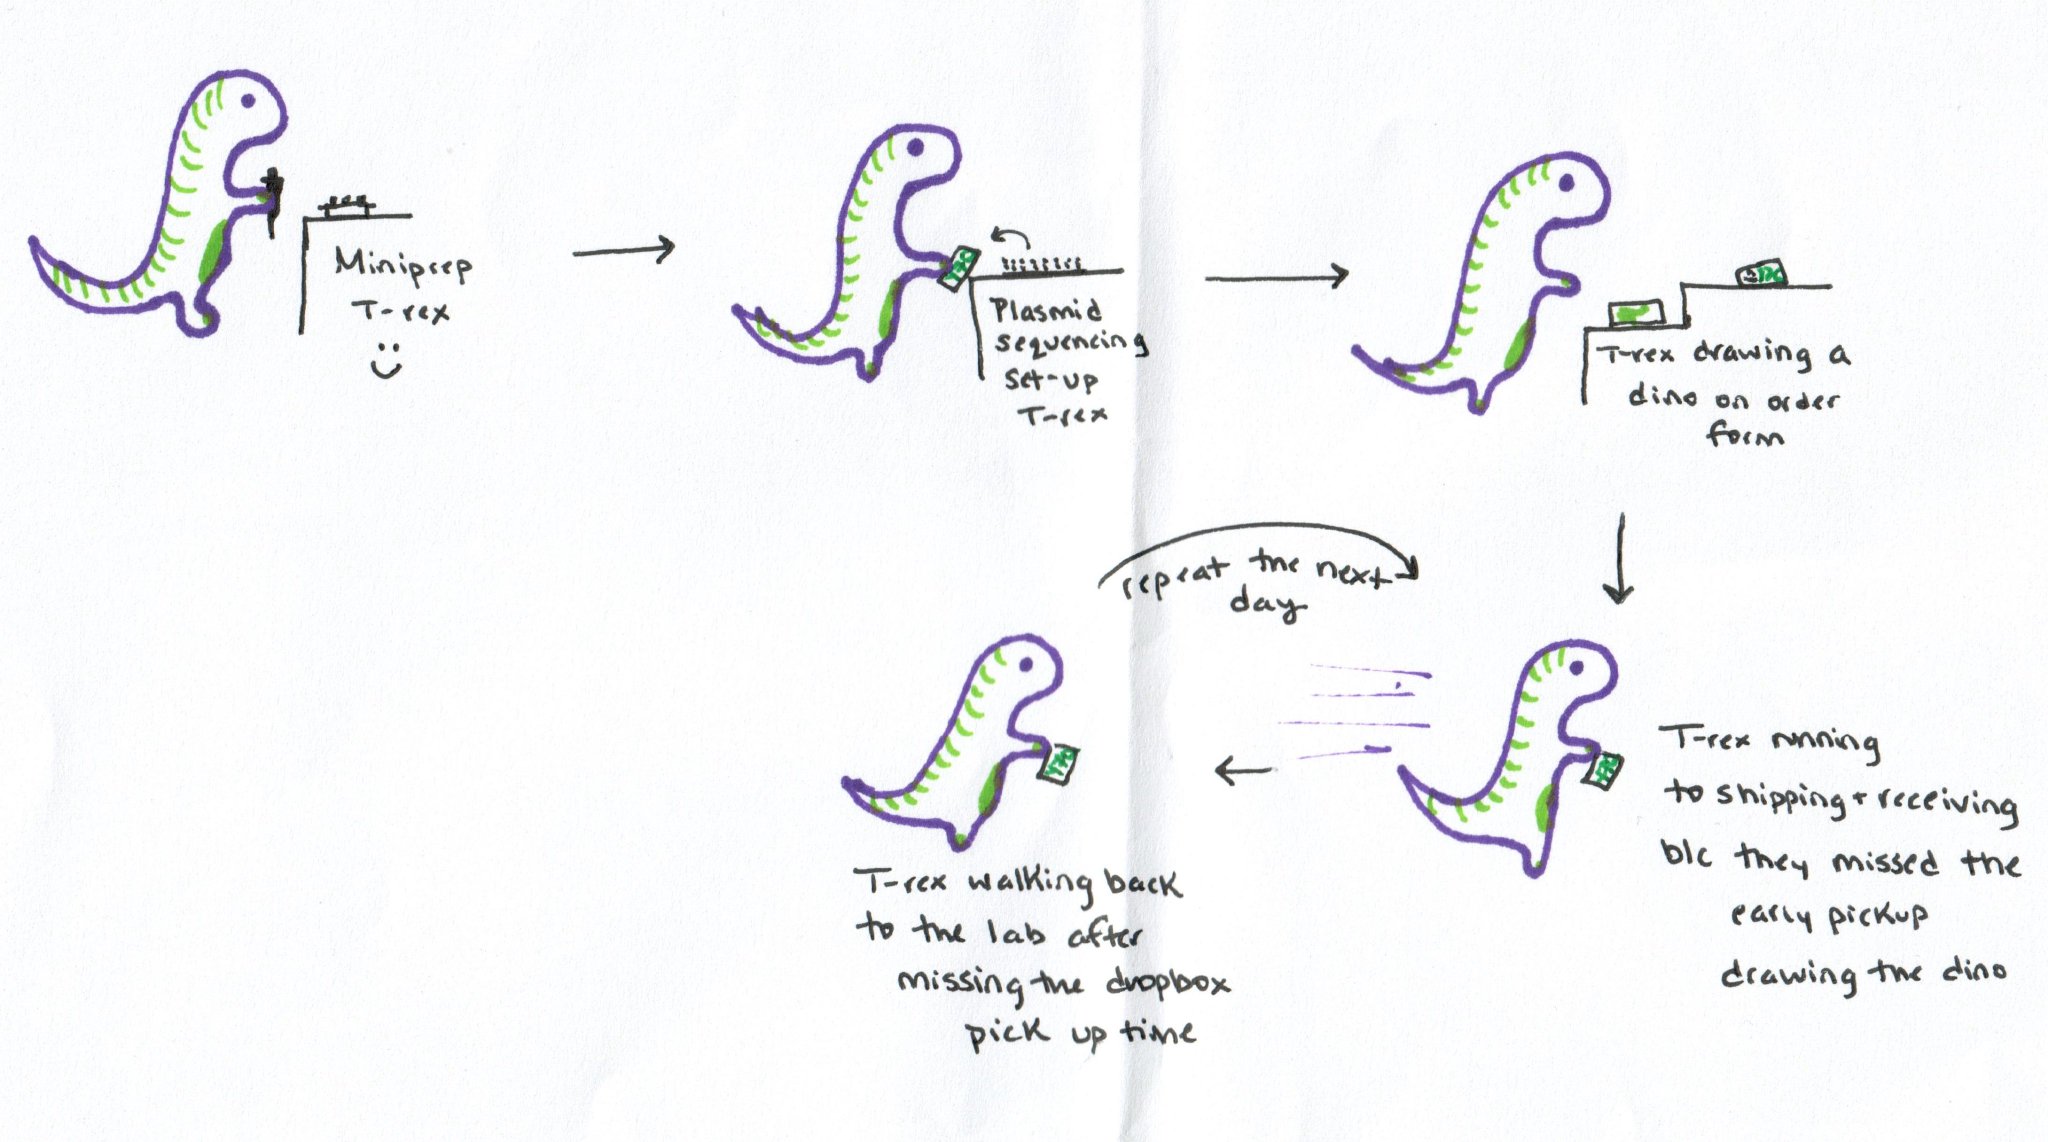 Miniprep
T-rex
Plasmid
sequencing
set-up
T-rex
T-rex drawing a
dino on order
form
repeat the next
day
T-rex running
to shipping + receiving
b/c they missed the
early pickup
drawing the dino
T-rex walking back
to the lab after
missing the dropbox
pick up time